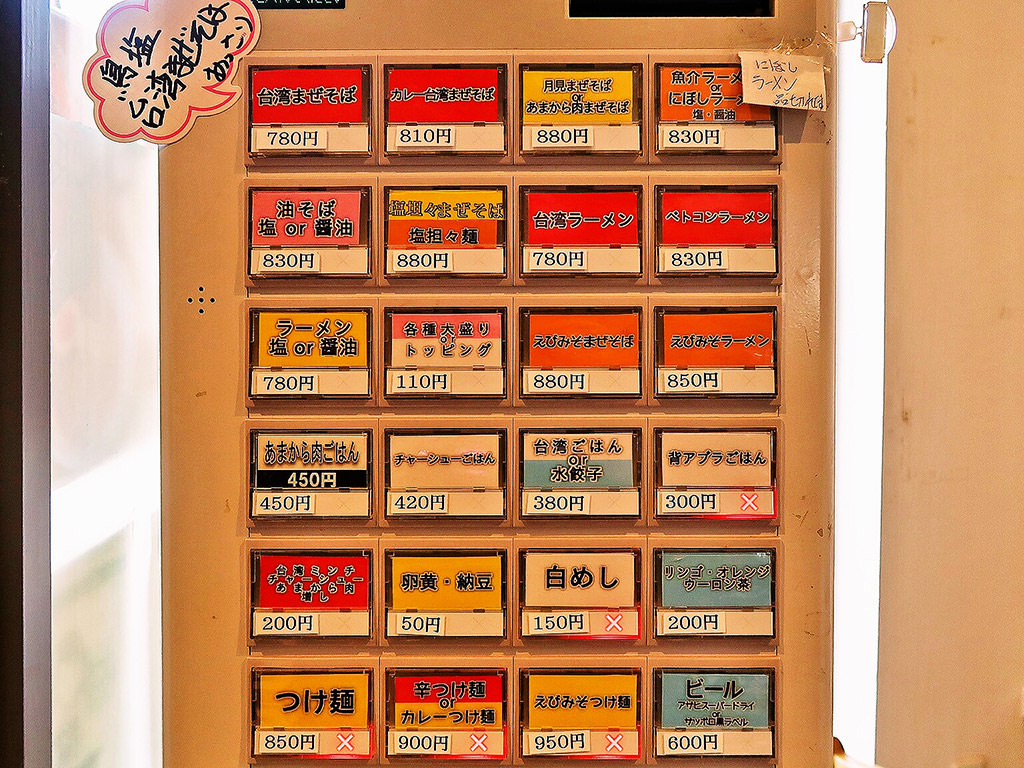 鳥塩
台湾まぜそば
あっさり
にぼし
ラーメン
品切れです
台湾まぜそば
780円
カレー台湾まぜそば
810円
月見まぜそば
or
あまから肉まぜそば
880円
魚介ラーメ
or
にぼしラーメ
塩・醤油
830円
油そば
塩 or 醤油
830円
塩坦々まぜそば
塩担々麺
880円
台湾ラーメン
780円
ベトコンラーメン
830円
ラーメン
塩 or 醤油
780円
各種大盛り
or
トッピング
110円
えびみそまぜそば
880円
えびみそラーメン
850円
あまから肉ごはん
450円
450円
チャーシューごはん
420円
台湾ごはん
or
水餃子
380円
背アブラごはん
300円
台湾ミンチ
チャーシュー
あまから肉
増し
200円
卵黄・納豆
50円
白めし
150円
リンゴ・オレンジ
ウーロン茶
200円
つけ麺
850円
辛つけ麺
or
カレーつけ麺
900円
えびみそつけ麺
950円
ビール
アサヒスーパードライ
or
サッポロ黒ラベル
600円